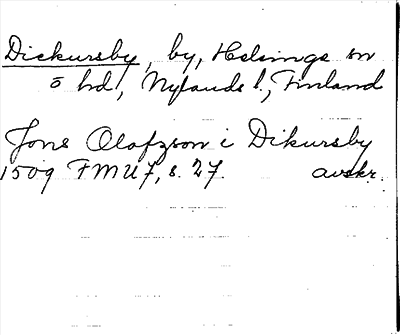 Dickursby, by, Helsinge sn
o hd, Nylands l., Finland
Jons Olafzson i Dikursby
1509 FMU 7, s. 27. avskr.